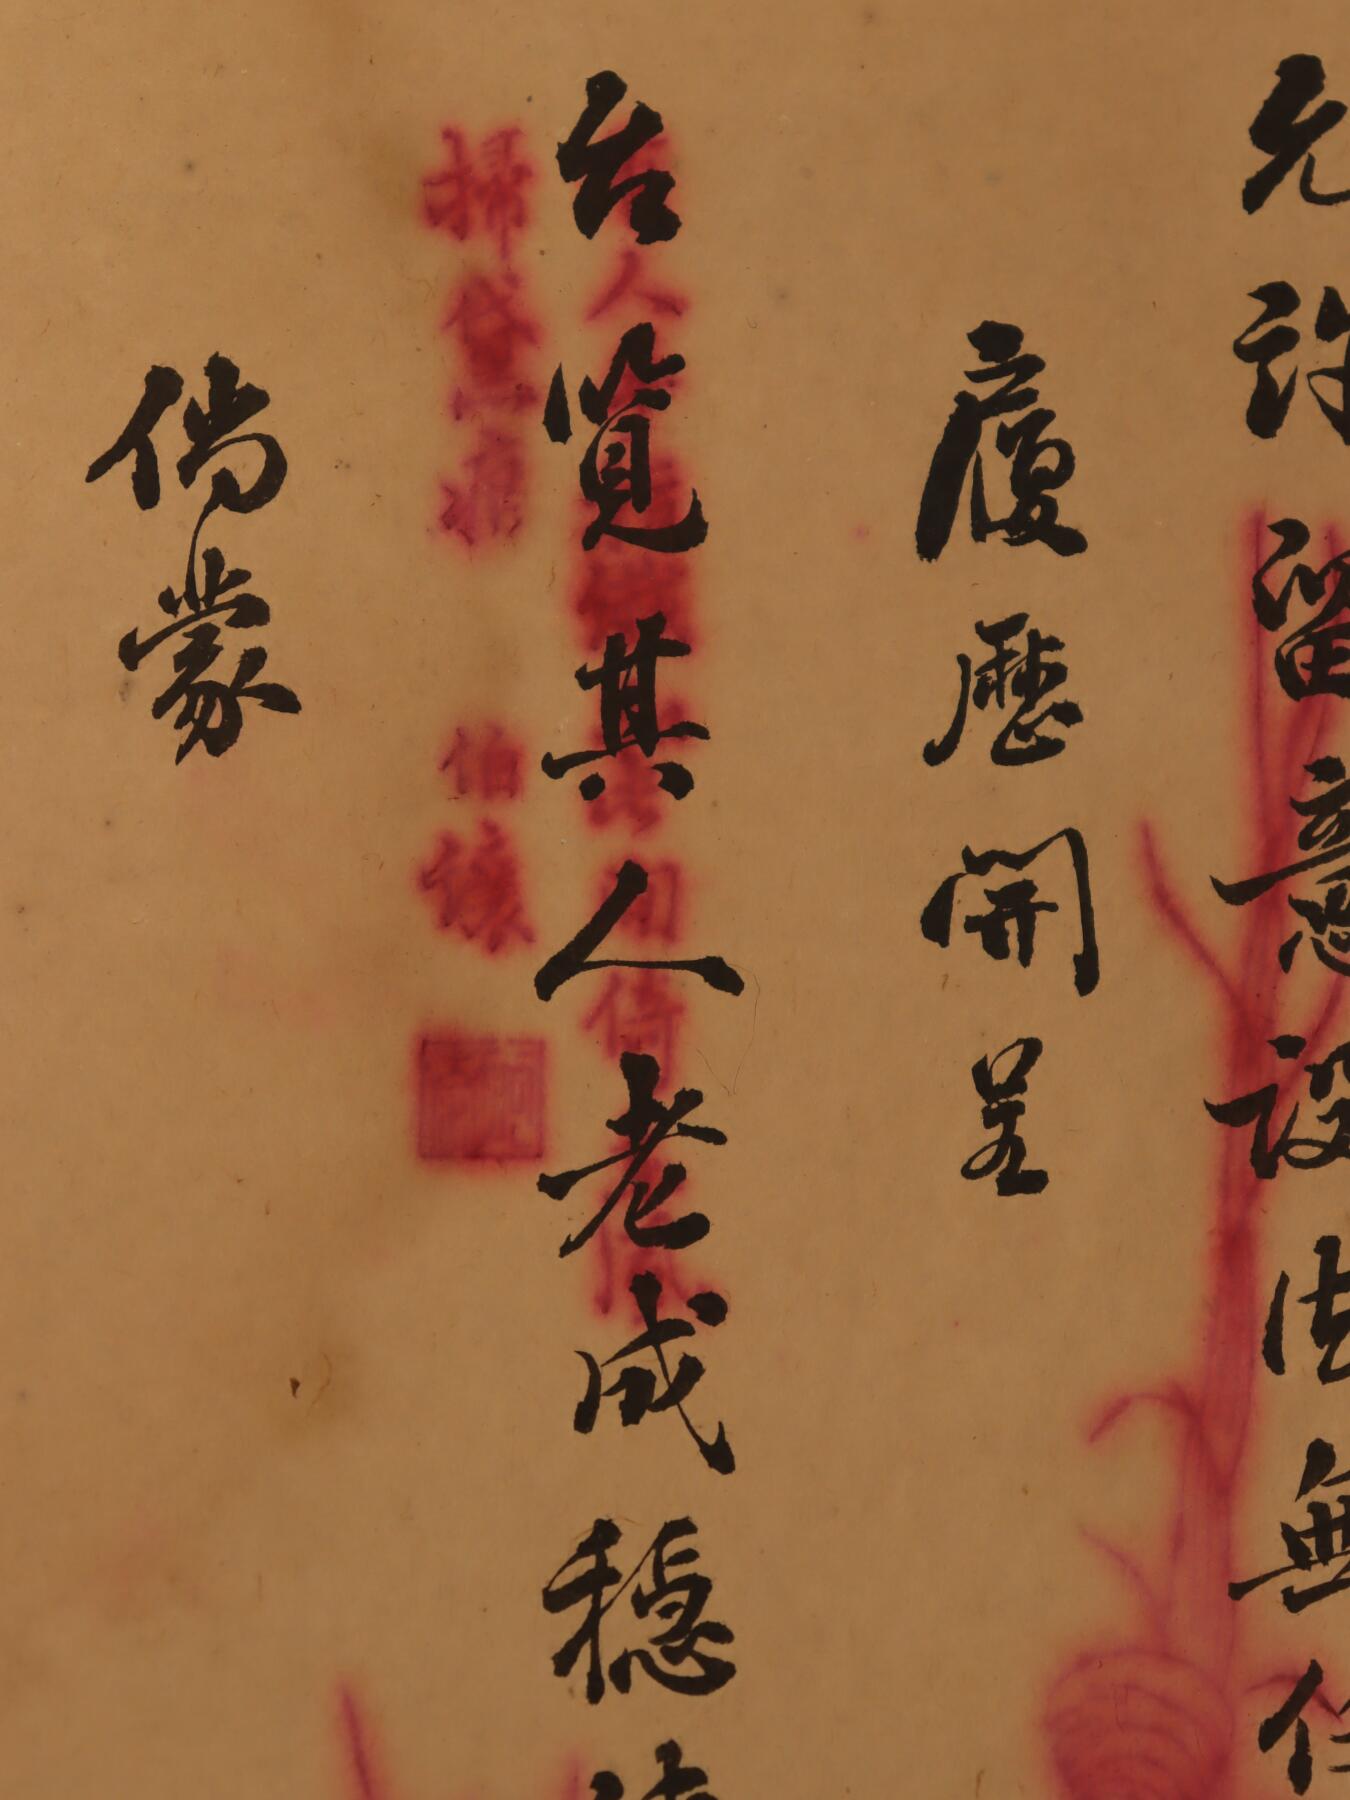 允許留意設法無任
履歷開呈
台覽其人老成穩
倘蒙
伯